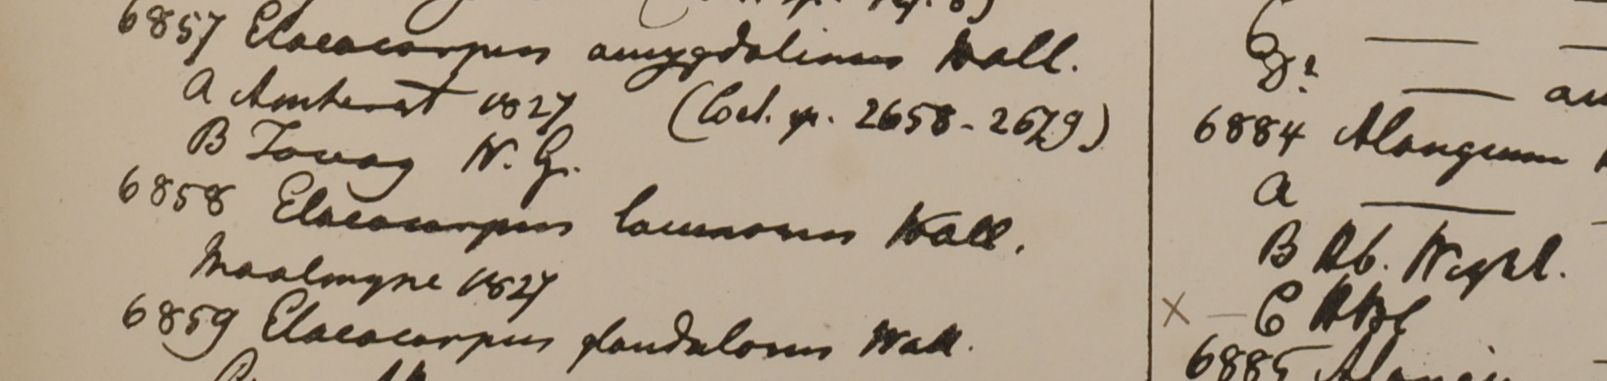 6857 Elaeocarpus amygdalinus Wall.
A Amherst 1827 (Cat. p. 2658-2679)
B Tavoy W. G.
6858 Elaeocarpus lacunosus Wall.
Moalmyne 1827
6859 Elaeocarpus glandulosus Wall.
D?
6884 Alangium
A
B Hb. Wight.
X — C HBC
6885